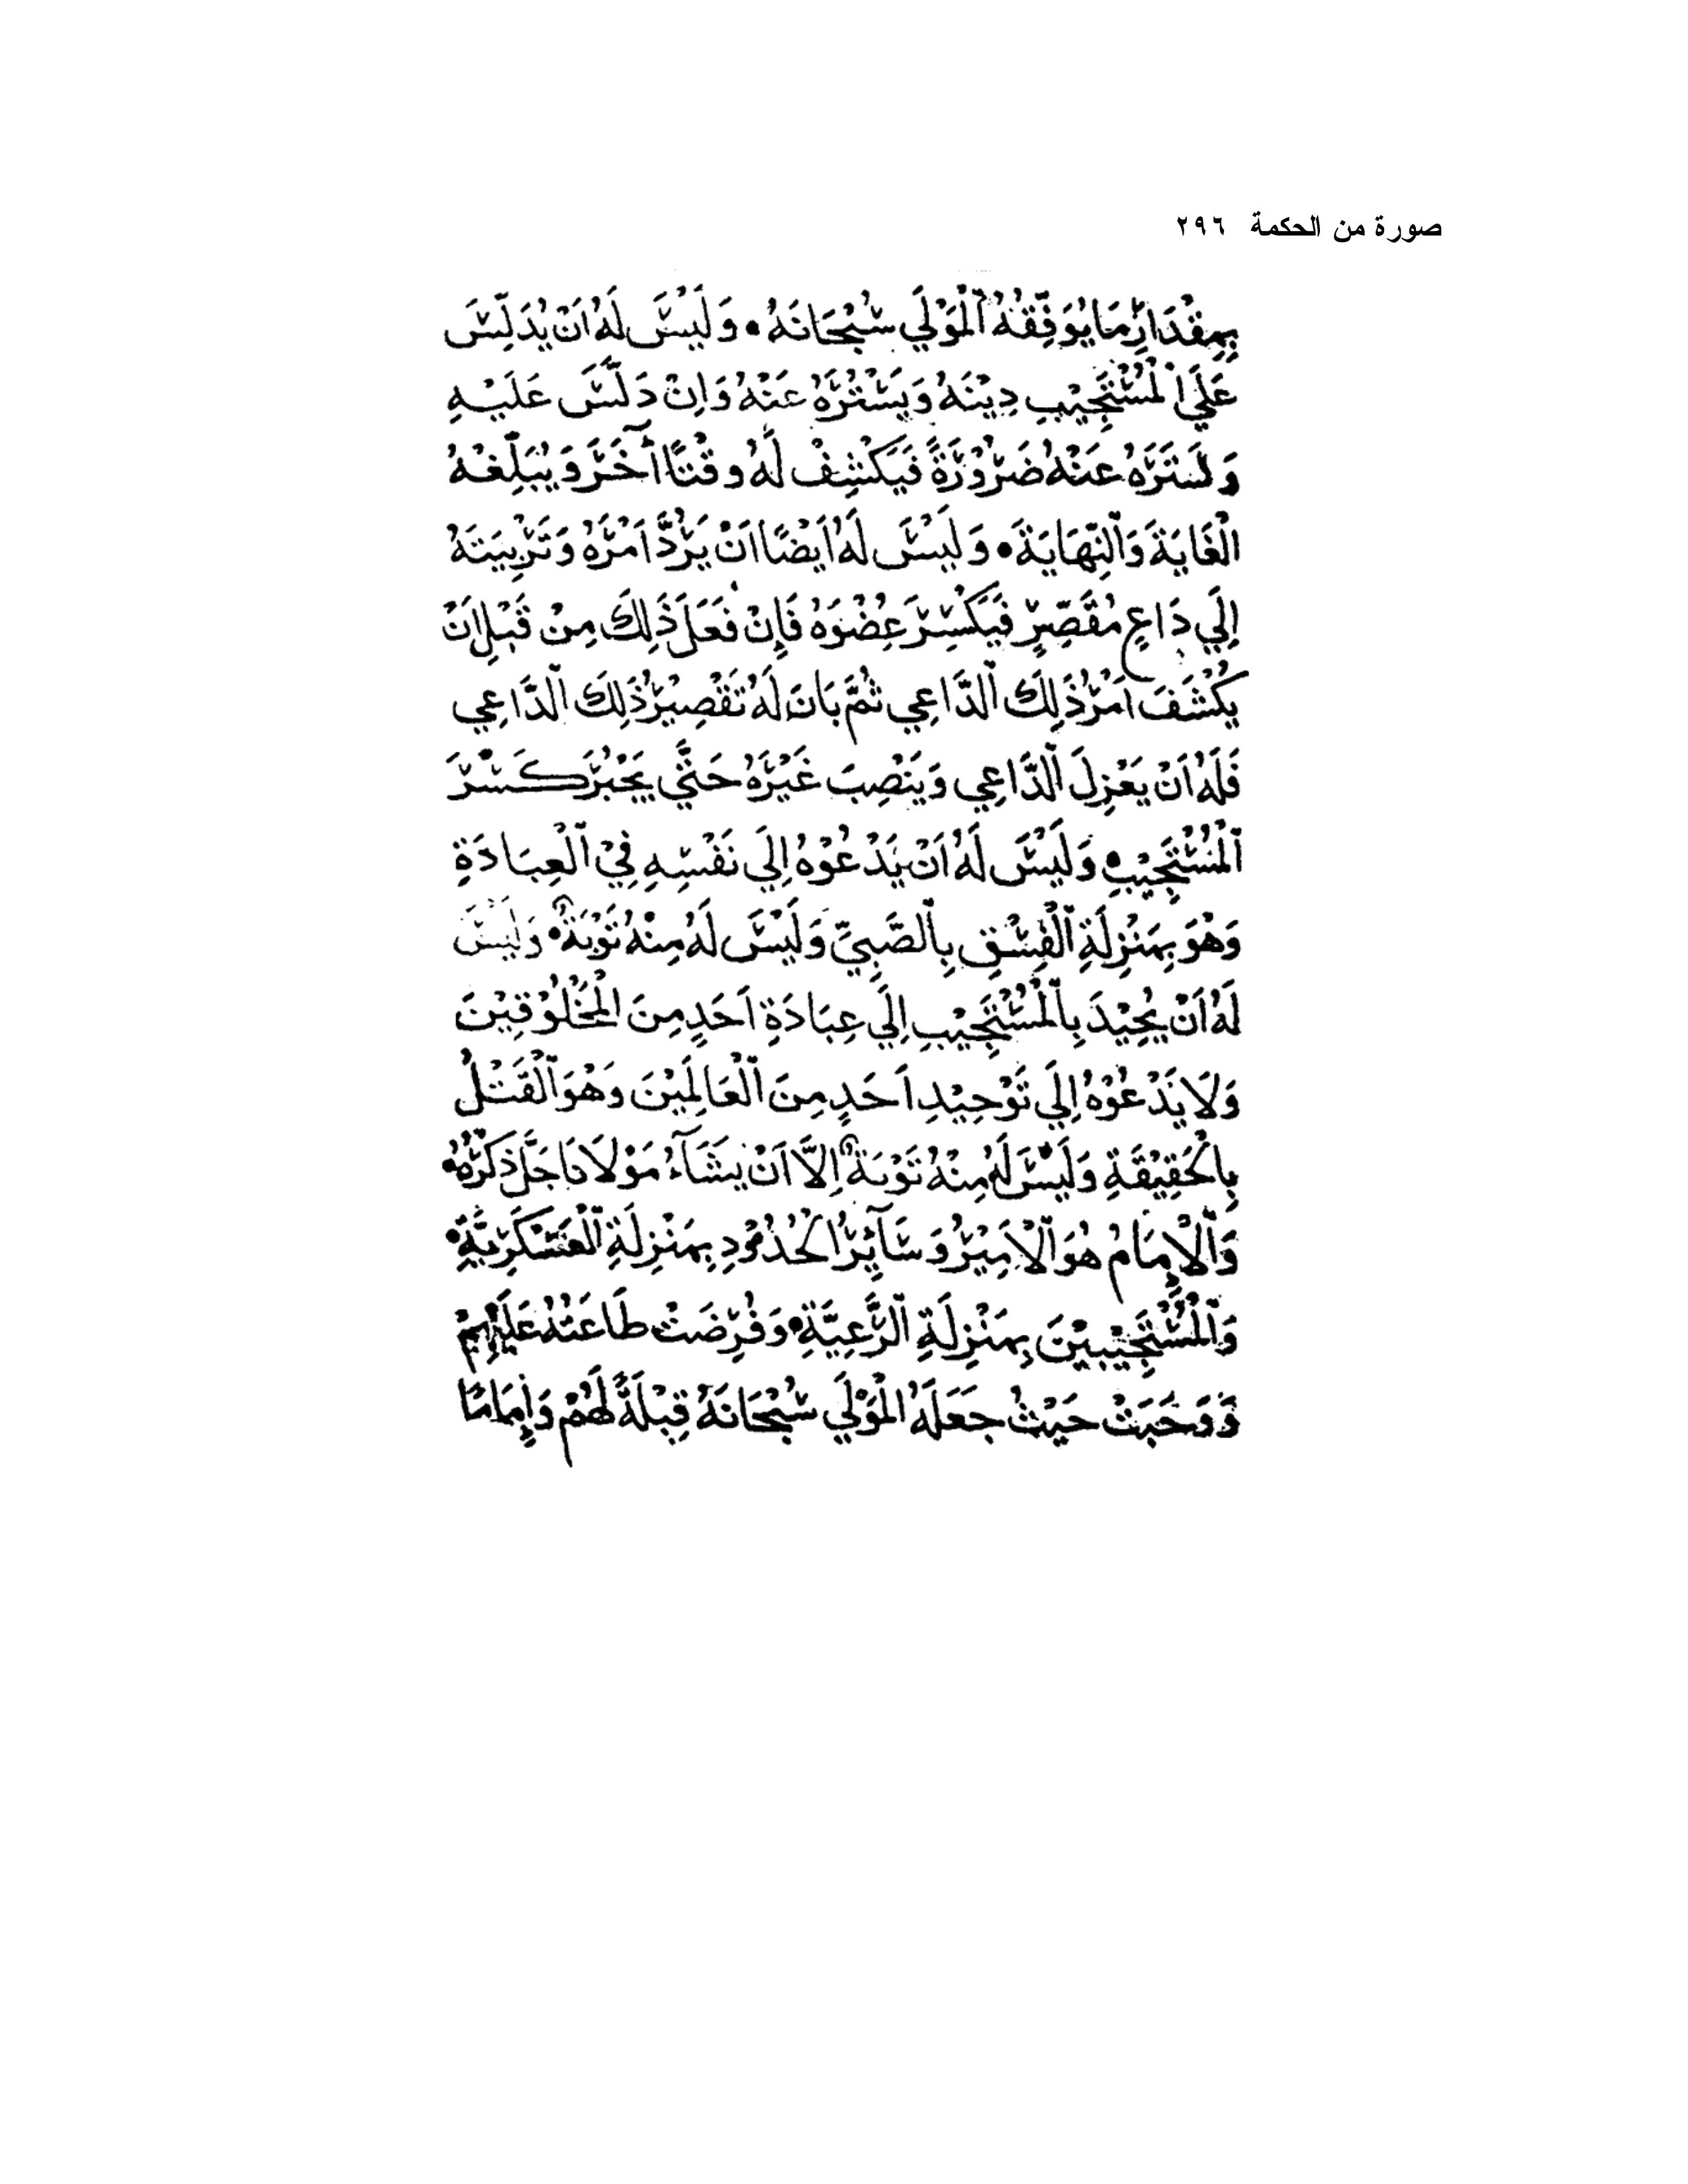 صورة من الحكمة ٢٩٦
بِمِقْدَارِ مَا يُوَفِّقُهُ ٱلْمَوْلَي سُبْحَانَهُ • وَلَيْسَ لَهُ اَنْ يُدَلِّسَ
عَلَي ٱلْمُسْتَجِيْبِ دِيْنَهُ وَيَسْتُرَهُ عَنْهُ وَاِنْ دَلَّسَ عَلَيْهِ
وَسَتَرَهُ عَنْهُ ضَرُوْرَةً فَيَكْشِفْ لَهُ وقْتًا آخَرَ وَيُبَلِّغهُ
الْغَايَةَ وَٱلنِّهَايَةَ • وَلَيْسَ لَهُ اَيضًا اَنْ يَرُدَّ اَمْرَهُ وَتَرْبِيَتَهُ
اِلَي دَاعٍ مُقَصِّرٍ فَيَكْسِرَ عُضْوَهُ فَاِنْ فَعَلَ ذَلِكَ مِنْ قَبْلِ اَنْ
يَكْشَفَ اَمْرُ ذَلِكَ ٱلدَّاعِي ثُمَّ بَانَ لَهُ تَقْصِيْرُ ذَلِكَ ٱلدَّاعِي
فَلَهُ اَنْ يَعْزِلَ ٱلدَّاعِي وَيَنْصِبَ غَيْرَهُ حَتَّي يَجْبُرَ كَسْرَ
ٱلْمُسْتَجِيْبِ • وَلَيْسَ لَهُ اَنْ يَدْعُوْهُ اِلَي نَفْسِهِ فِيْ ٱلْعِبَادَةِ
وَهْوَ بِمَنْزِلَةِ ٱلْفِسْقِ بِٱلصَّبِيِّ وَلَيْسَ لَهُ مِنْهُ تَوْبَةٌ • وَلَيْسَ
لَهُ اَنْ يُحِيْدَ بِٱلْمُسْتَجِيْبِ اِلَي عِبَادَةِ اَحَدٍ مِنَ الْمَخْلُوْقِيْنَ
وَلَا يَدْعُوْهُ اِلَي تَوْحِيْدِ اَحَدٍ مِنَ ٱلْعَالَمِيْنَ وَهْوَ ٱلْقَتْلُ
بِالْحَقِيْقَةِ وَلَيْسَ لَهُ مِنْهُ تَوْبَةٌ اِلَّا اَنْ يَشَآءُ مَوْلَانَا جَلَّ ذِكْرُهُ •
وَٱلْاِمَامُ هُوَ ٱلْاَمِيْرُ وَسَآئِرُ الْحُدُوْدِ بِمَنْزِلَةِ ٱلْعَسْكَرِيَّةِ •
وَٱلْمُسْتَجِيْبِيْنَ بِمَنْزِلَةِ ٱلرَّعِيَّةِ • وَفُرِضَتْ طَاعَتُهُ عَلَيْهِمْ
وَوَجَبَتْ حَيْثُ جَعَلَهُ الْمَوْلَي سُبْحَانَهُ قِبْلَةً لَهُمْ وَاِمَامًا